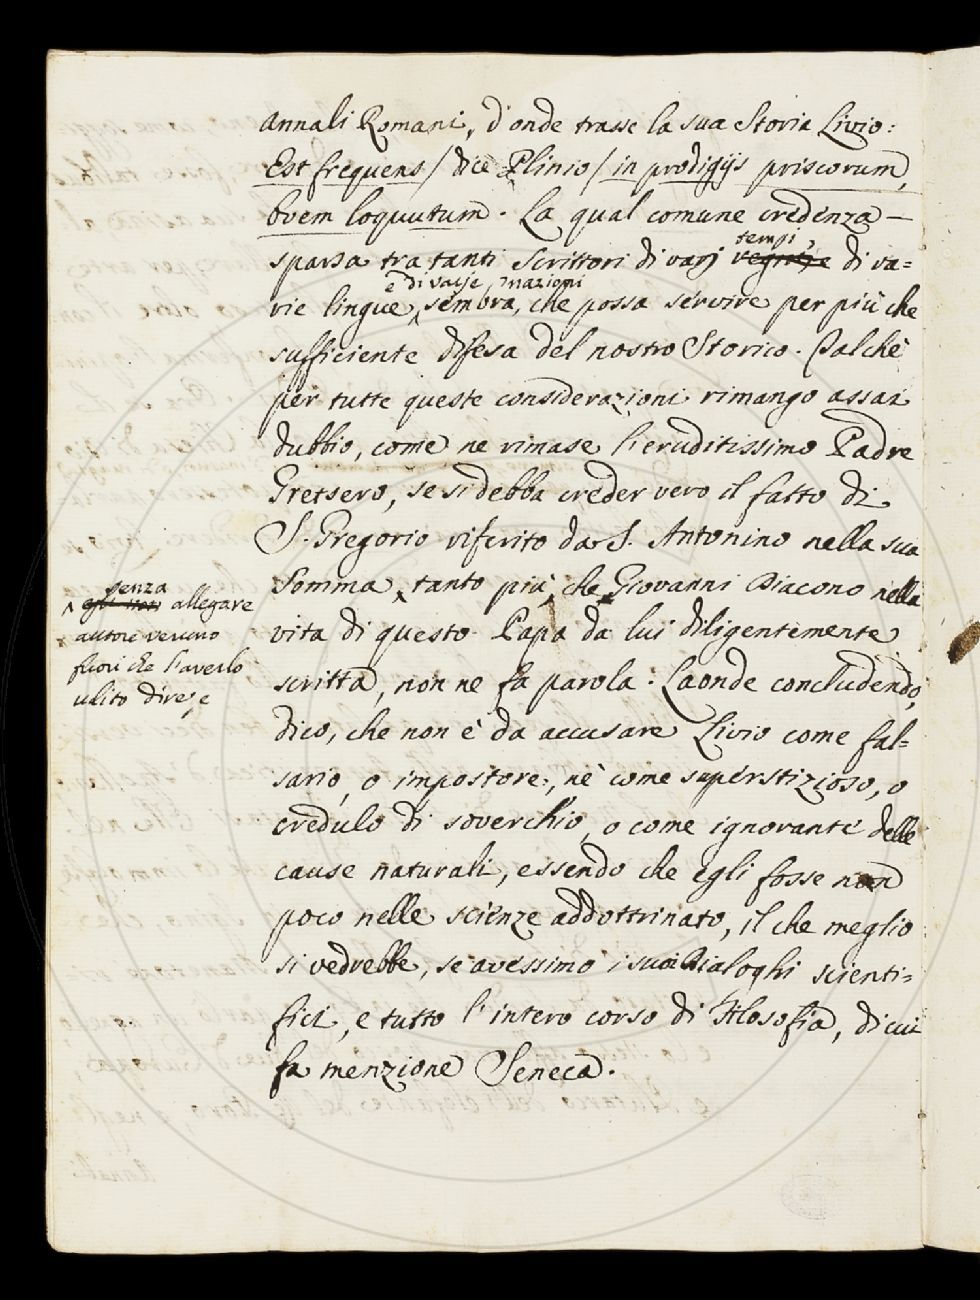 Annali Romani, d'onde trasse la sua Storia Livio:
Est frequens / dice Plinio / in prodigijs priscorum,
bovem loquutum. La qual comune credenza —
sparsa tra tanti Scrittori di varj tempi, di va=
rie lingue, e di varie nazioni sembra, che possa servire per più che
sufficiente difesa del nostro Storico. Talchè
per tutte queste considerazioni rimango assai
dubbio, come ne rimase l'eruditissimo Padre
Gretsero, se si debba creder vero il fatto di
S. Gregorio riferito da S. Antonino nella sua
Somma, tanto più, che Giovanni Diacono nella
vita di questo Papa da lui diligentemente
scritta, non ne fa parola. Laonde concludendo,
dico, che non è da accusare Livio come fal=
sario, o impostore, nè come superstizioso, o
credulo di soverchio, o come ignorante delle
cause naturali, essendo che egli fosse non
poco nelle scienze addottrinato, il che meglio
si vedrebbe, se avessimo i suoi Dialoghi scienti=
fici, e tutto l'intero corso di Filosofia, di cui
fa menzione Seneca.
senza
egli non allegare
autore veruno
fuori che l'averlo
udito dire, e